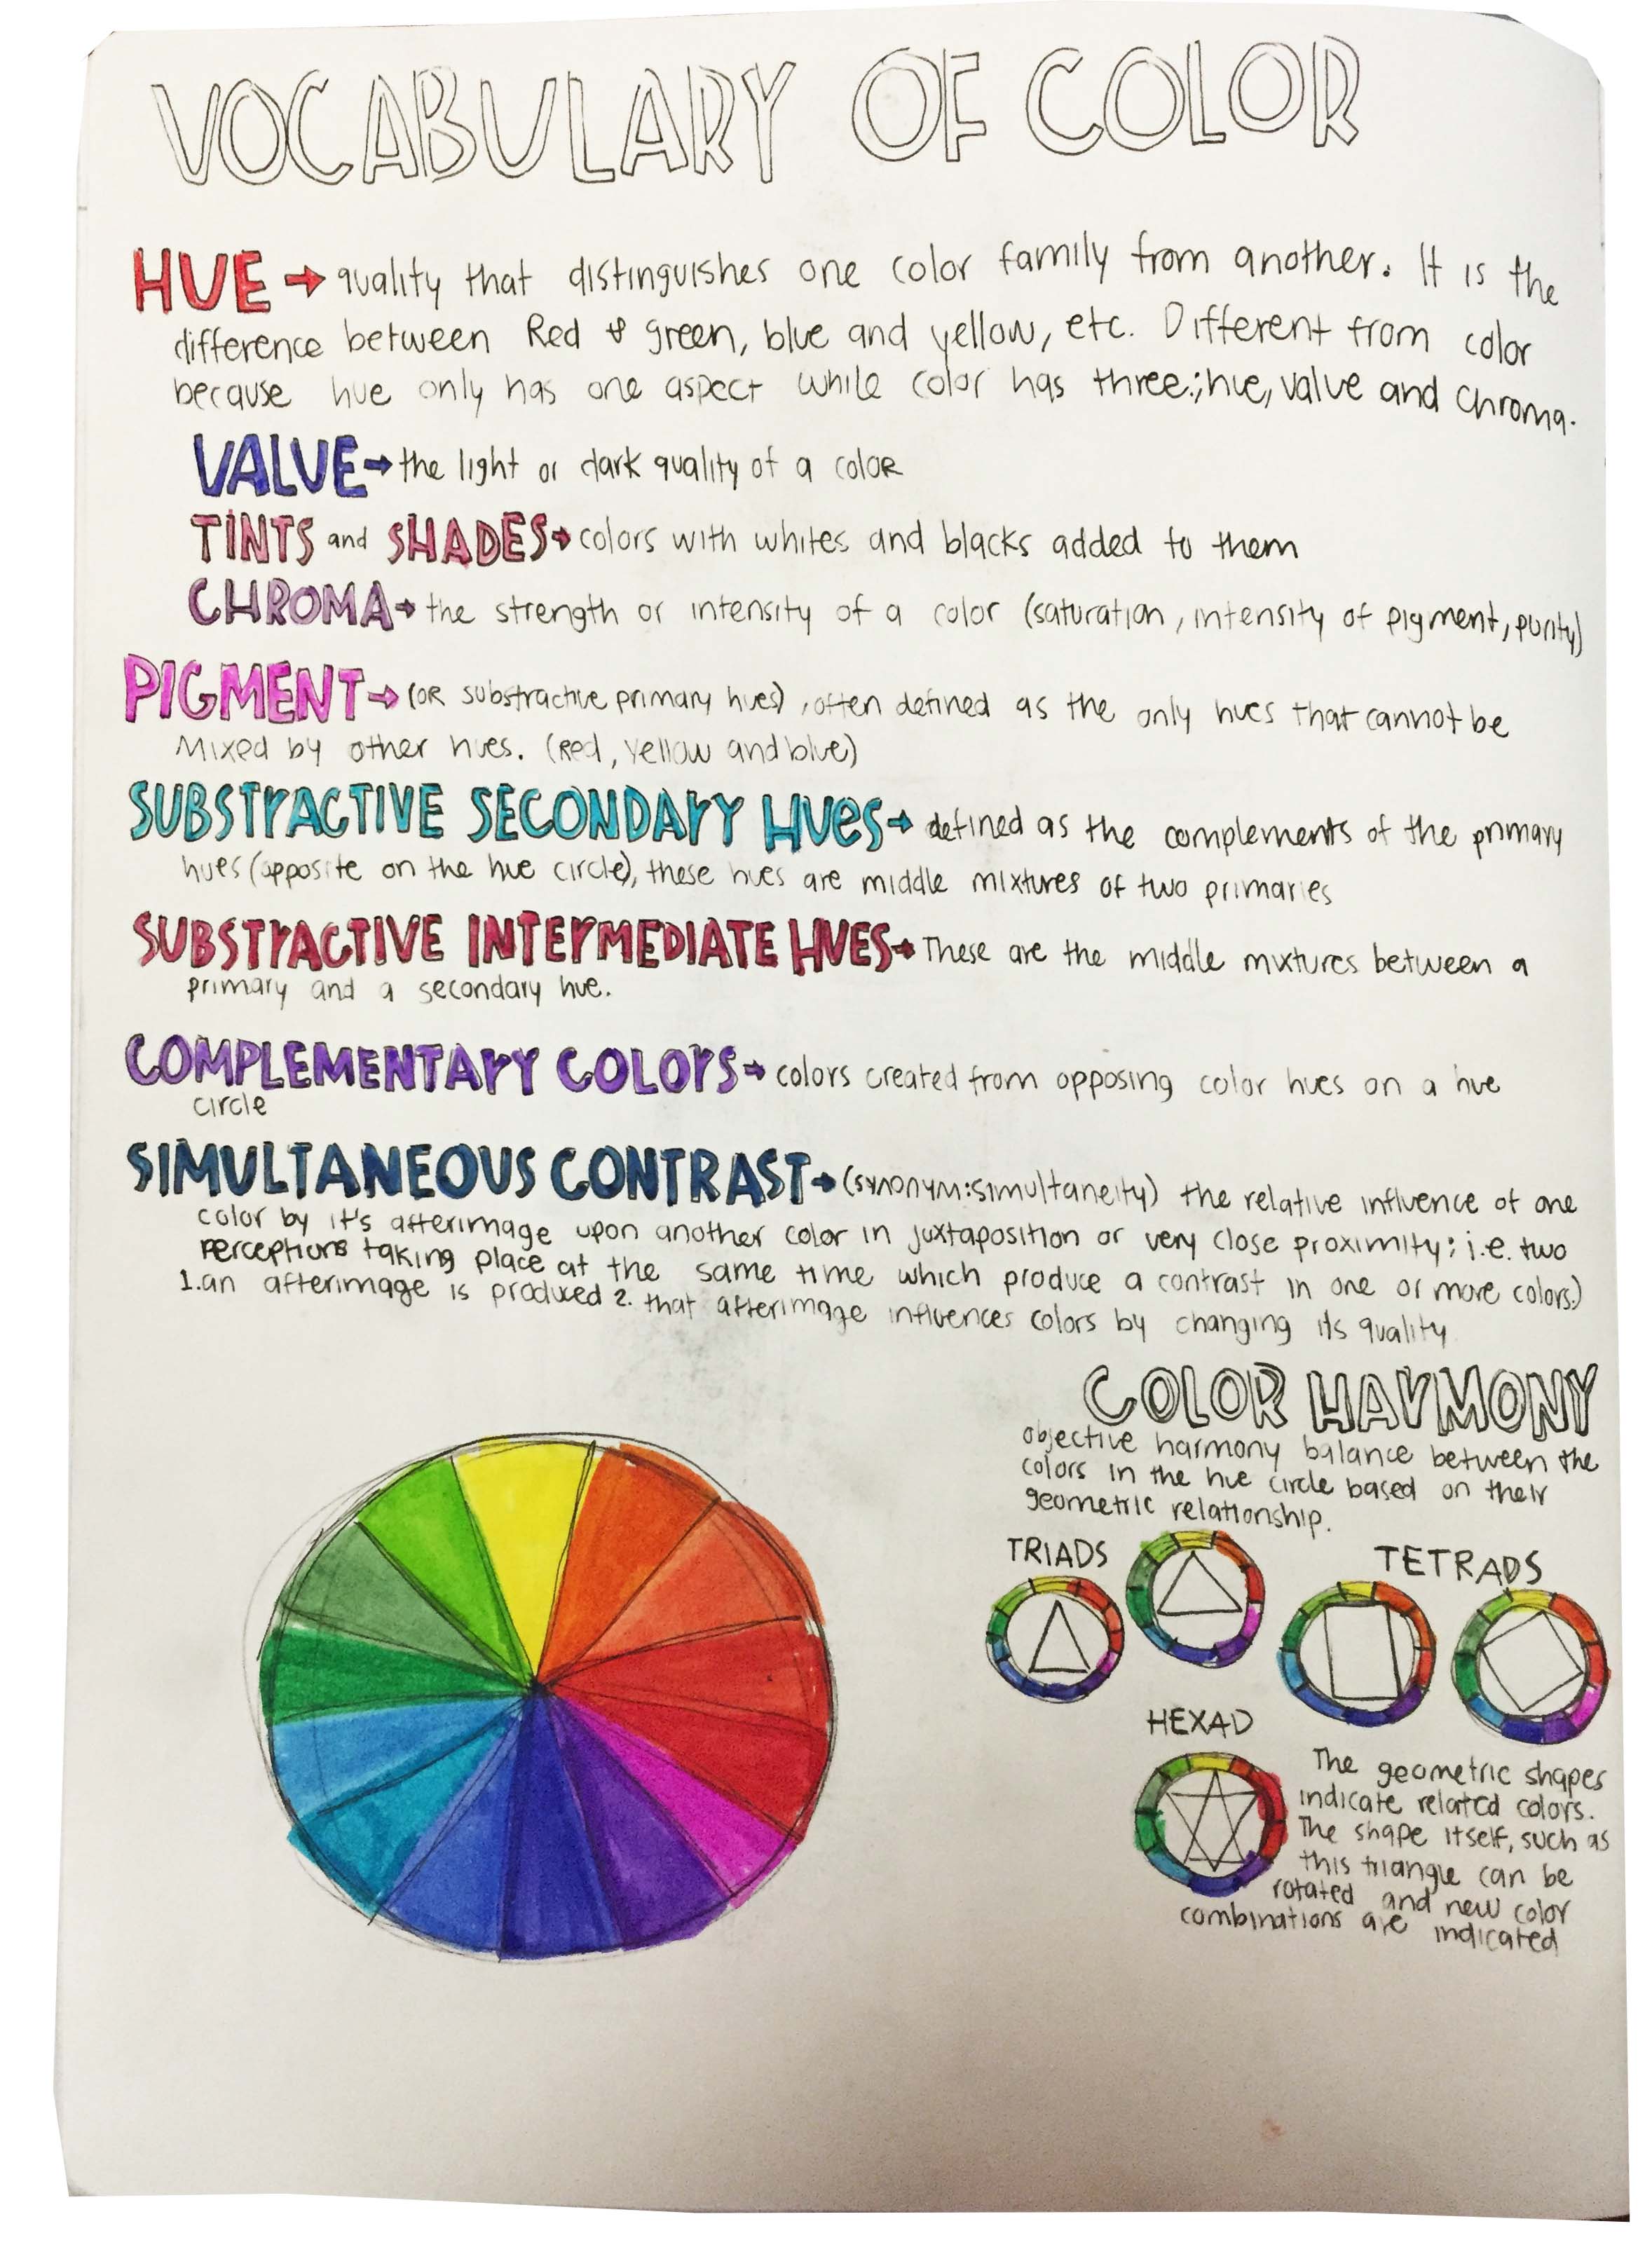 VOCABULARY OF COLOR
HUE → quality that distinguishes one color family from another. It is the
difference between Red & green, blue and yellow, etc. Different from color
because hue only has one aspect while color has three:; hue, value and chroma.
VALUE → the light or dark quality of a color
TINTS and SHADES → colors with whites and blacks added to them
CHROMA → the strength or intensity of a color (saturation, intensity of pigment, purity)
PIGMENT → (OR substractive primary hues), often defined as the only hues that cannot be
Mixed by other hues. (Red, Yellow and blue)
SUBSTRACTIVE SECONDARY HUES → defined as the complements of the primary
hues (opposite on the hue circle), these hues are middle mixtures of two primaries
SUBSTRACTIVE INTERMEDIATE HUES → These are the middle mixtures between a
primary and a secondary hue.
COMPLEMENTARY COLORS → colors created from opposing color hues on a hue
circle
SIMULTANEOUS CONTRAST → (synonym: simultaneity) the relative influence of one
color by it's afterimage upon another color in juxtaposition or very close proximity; i.e. two
perceptions taking place at the same time which produce a contrast in one or more colors.)
1. an afterimage is produced 2. that afterimage influences colors by changing its quality
COLOR HARMONY
objective harmony balance between the
colors in the hue circle based on their
geometric relationship.
TRIADS
TETRADS
HEXAD
The geometric shapes
indicate related colors.
The shape itself, such as
this triangle can be
rotated and new color
combinations are indicated